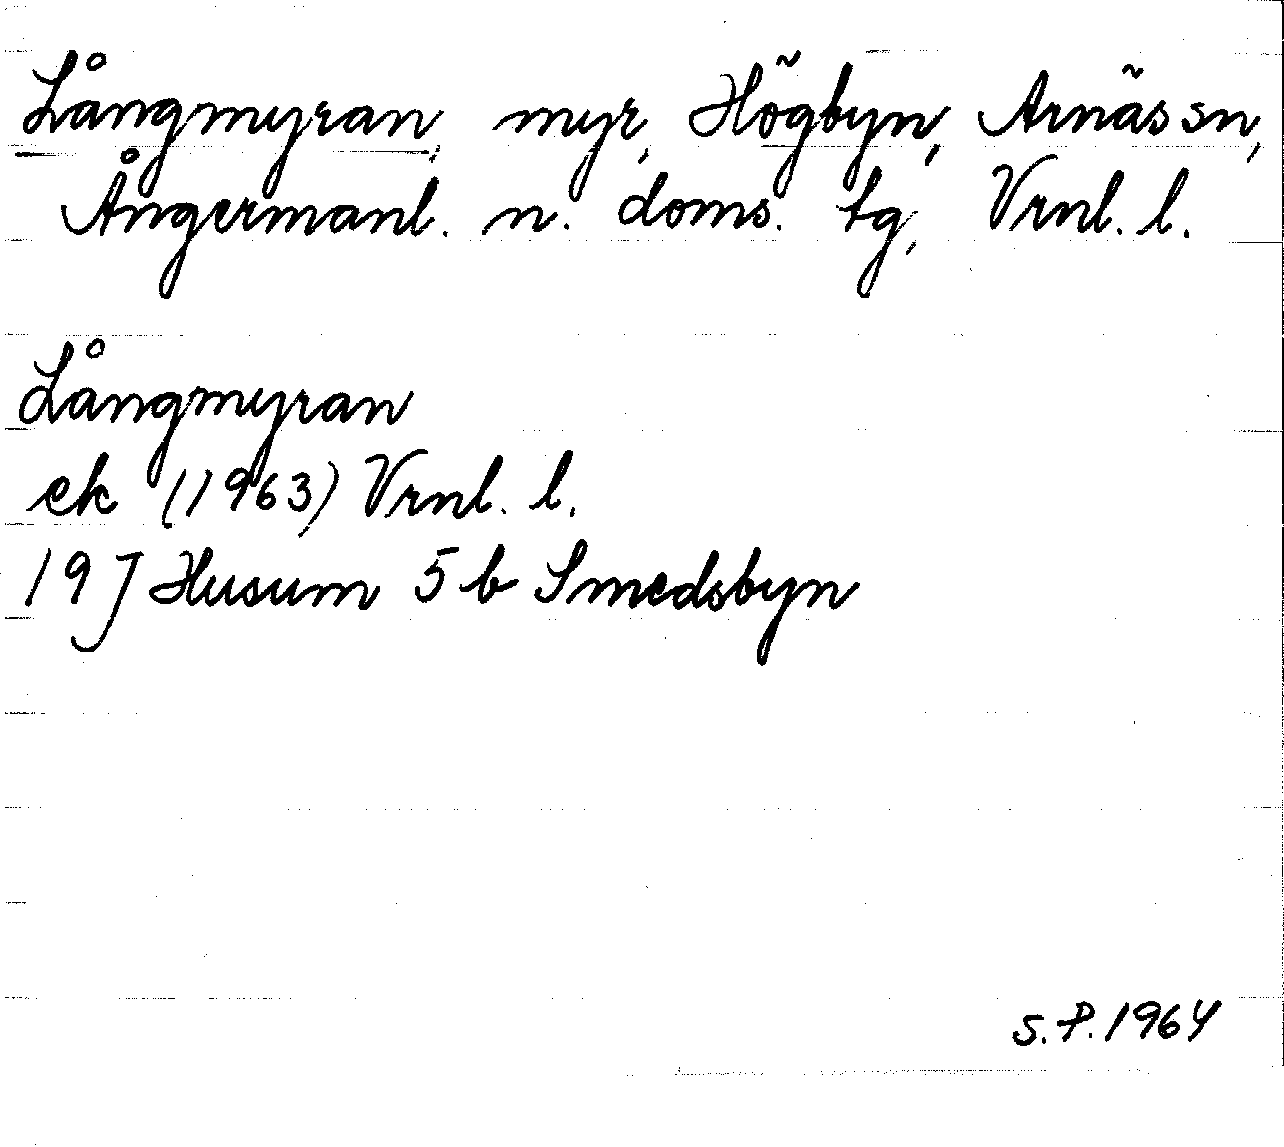 Långmyran, myr, Högbyn, Arnäs sn,
Ångermanl. n. doms. tg, Vrnl. l.
Långmyran
ek (1963) Vrnl. l.
19 J Husum 5 b Smedsbyn
S.P. 1964